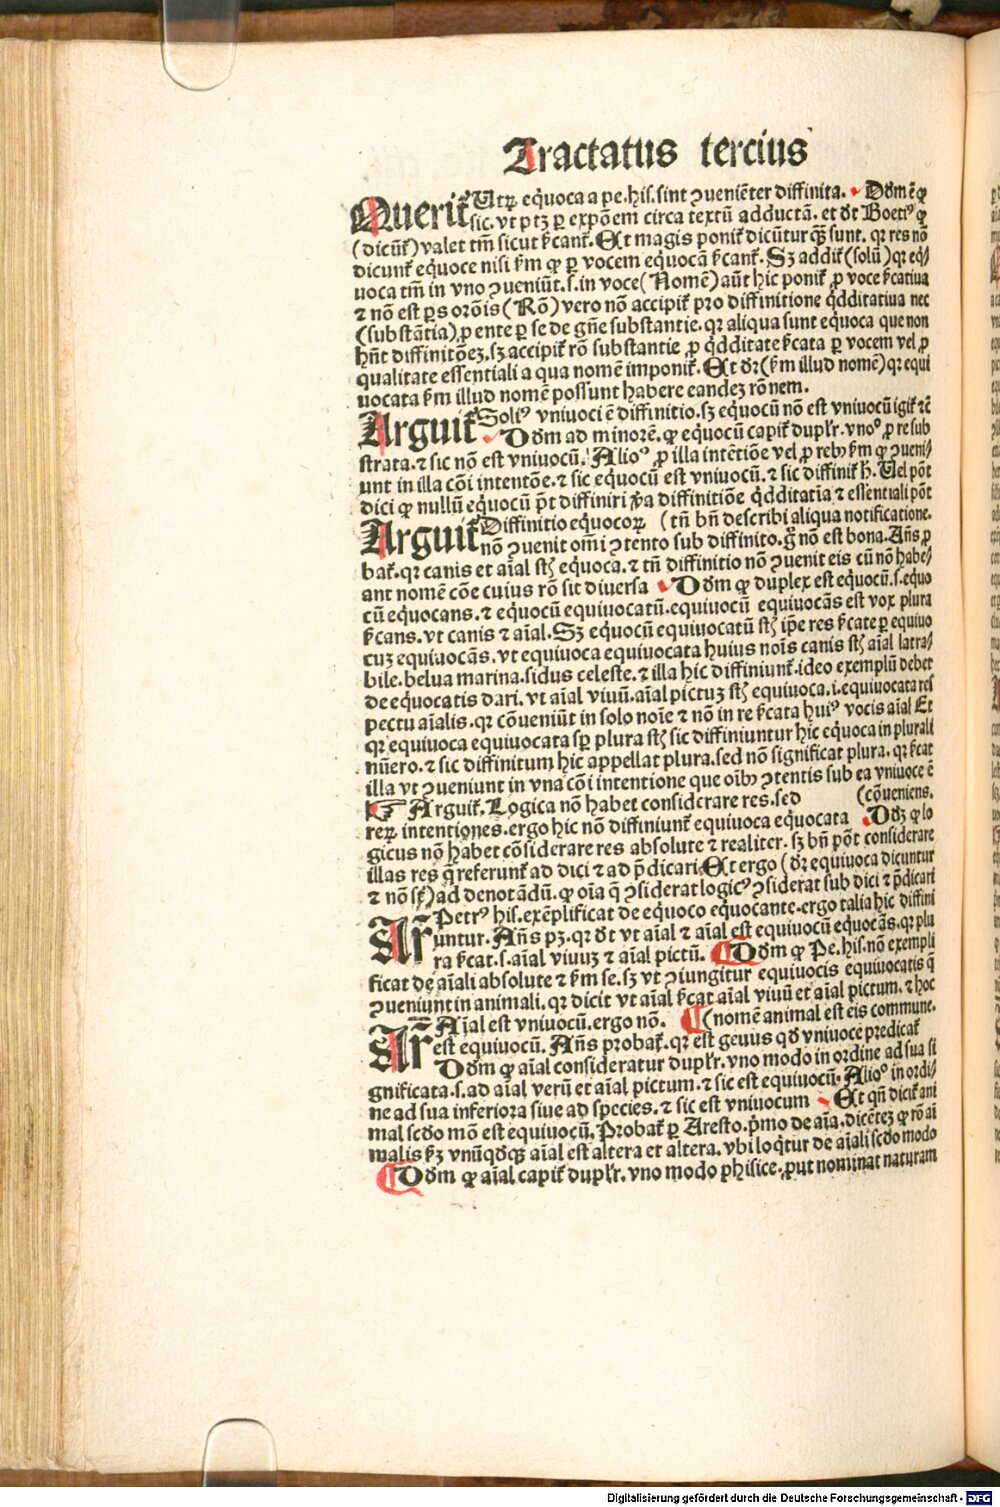 Tractatus tercius
Querit᷑ Utrꝝ eq̇uoca a pe.his.sint ꝯueniēter diffinita. Dōm ē ꝙ
sic. vt ptꝫ ꝑ expōem circa textū adductā. et dt Boeti⁹ ꝙ
(dicūt᷑) valet tm̄ sicut ẜcant᷑. Et magis ponit᷑ dicūtur qꝫ sunt. qꝛ res nō
dicunt᷑ eq̇uoce nisi ẜm ꝙ ꝑ vocem equocā ẜcant᷑. Sꝫ addit᷑ (solū) qꝛ eq̇/
uoca tm̄ in vno ꝯueniūt.s.in voce (Nomē) aūt hic ponit᷑ ꝓ voce ẜcatiua
⁊ nō est ꝑs orōis (Rō) vero nō accipit᷑ pro diffinitione qͥdditatiua nec
(substātia) ꝓ ente ꝑ se de gn̄e substantie. qꝛ aliqua sunt eq̇uoca que non
hn̄t diffinitōeꝫ. sꝫ accipit᷑ rō substantie ꝓ qͥdditate ẜcata ꝑ vocem vel ꝓ
qualitate essentiali a qua nomē imponit᷑. Et dꝛ (ẜm illud nomē) qꝛ equi
uocata ẜm illud nomē possunt habere eandeꝫ rōnem.
Arguit᷑ Soli⁹ vniuoci ē diffinitio. sꝫ eq̇uocū nō est vniuocū igit᷑ ⁊c̄
Dōm ad minorē. ꝙ equocū capit᷑ duplꝛ. vno⁹ ꝓ re sub
strata. ⁊ sic nō est vniuocū. Alio⁹ ꝓ illa intētiōe vel ꝓ rebꝰ ẜm ꝙ ꝯueni/
unt in illa cōi intentōe. ⁊ sic eq̇uocū est vniuocū. ⁊ sic diffinit᷑ h̄. Uel pōt
dici ꝙ nullū eq̇uocū p̄t diffiniri ꝟa diffinitiōe qͥdditatīa ⁊ essentiali pōt
Arguit᷑ Diffinitio equocoꝝ (tn̄ bn̄ describi aliqua notificatione.
nō ꝯuenit om̄i ꝯtento sub diffinito. g̊ nō est bona. Añs ꝓ
bat᷑. qꝛ canis et aīal st̄ eq̇uoca. ⁊ tn̄ diffinitio nō ꝯuenit eis cū nō habe/
ant nomē cōe cuius rō sit diuersa Dōm ꝙ duplex est eq̇uocū.s.equo
cū equocans. ⁊ eq̇uocū equiuocatū. equiuocū equiuocās est vox plura
ẜcans. vt canis ⁊ aīal. Sꝫ eq̇uocū equiuocatū st̄ ip̄e res ẜcate ꝑ equiuo
cuꝫ equiuocās. vt equiuoca equiuocata huius noīs canis st̄ aīal latra/
bile. belua marina. sidus celeste. ⁊ illa hic diffiniunt᷑. ideo exemplū debet
de eq̇uocatis dari. vt aīal viuū. aīal pictuꝫ st̄ equiuoca.i.equiuocata res
pectu aīalis. qꝛ cōueniūt in solo noīe ⁊ nō in re ẜcata hui⁹ vocis aīal Et
qꝛ equiuoca equiuocata sꝑ plura st̄ sic diffiniuntur hic eq̇uoca in plurali
nūero. ⁊ sic diffinitum hic appellat plura. sed nō significat plura. qꝛ ẜcat
illa vt ꝯueniunt in vna cōi intentione que oībꝰ ꝯtentis sub ea vniuoce ē
☞ Arguit᷑. Logica nō habet considerare res. sed (cōueniens.
reꝝ intentiones. ergo hic nō diffiniunt᷑ equiuoca eq̇uocata Dōꝫ ꝙ lo
gicus nō habet cōsiderare res absolute ⁊ realiter. sꝫ bn̄ pōt considerare
illas res q̄ referunt᷑ ad dici ⁊ ad p̄dicari. Et ergo (dꝛ equiuoca dicuntur
⁊ nō st̄) ad denotādū. ꝙ oīa q̄ ꝯsiderat logic⁹ ꝯsiderat sub dici ⁊ p̄dicari
Ar᷑ Petr⁹ his. exēplificat de equoco eq̇uocante. ergo talia hic diffini
untur. Añs pꝫ. qꝛ dt vt aīal ⁊ aīal est equiuocū equocās. qꝛ plu
ra ẜcat.s.aīal viuuꝫ ⁊ aīal pictū. Dōm ꝙ Pe.his. nō exempli
ficat de aīali absolute ⁊ ẜm se. sꝫ vt ꝯiungitur equiuocis equiuocatis q̄
ꝯueniunt in animali. qꝛ dicit vt aīal ẜcat aīal viuū et aīal pictum. ⁊ hoc
Ar᷑ Aīal est vniuocū. ergo nō. (nomē animal est eis commune.
est equiuocū. Añs probat᷑. qꝛ est genus qd̄ vniuoce predicat᷑
Dōm ꝙ aīal consideratur duplꝛ. vno modo in ordine ad sua si
gnificata.s.ad aīal verū et aīal pictum. ⁊ sic est equiuocū. Alio⁹ in ordi/
ne ad sua inferiora siue ad species. ⁊ sic est vniuocum Et qn̄ dicit᷑ ani
mal scd̄o mō est equiuocū. Probat᷑ ꝑ Aresto. pͥmo de aīa. dicēteꝫ ꝙ rō ai
malis ẜꝫ vnūqͦdqꝫ aīal est altera et altera. vbi loqͥtur de aīali scd̄o modo
Dōm ꝙ aīal capit᷑ duplꝛ. vno modo phisice. ꝓut nominat naturam